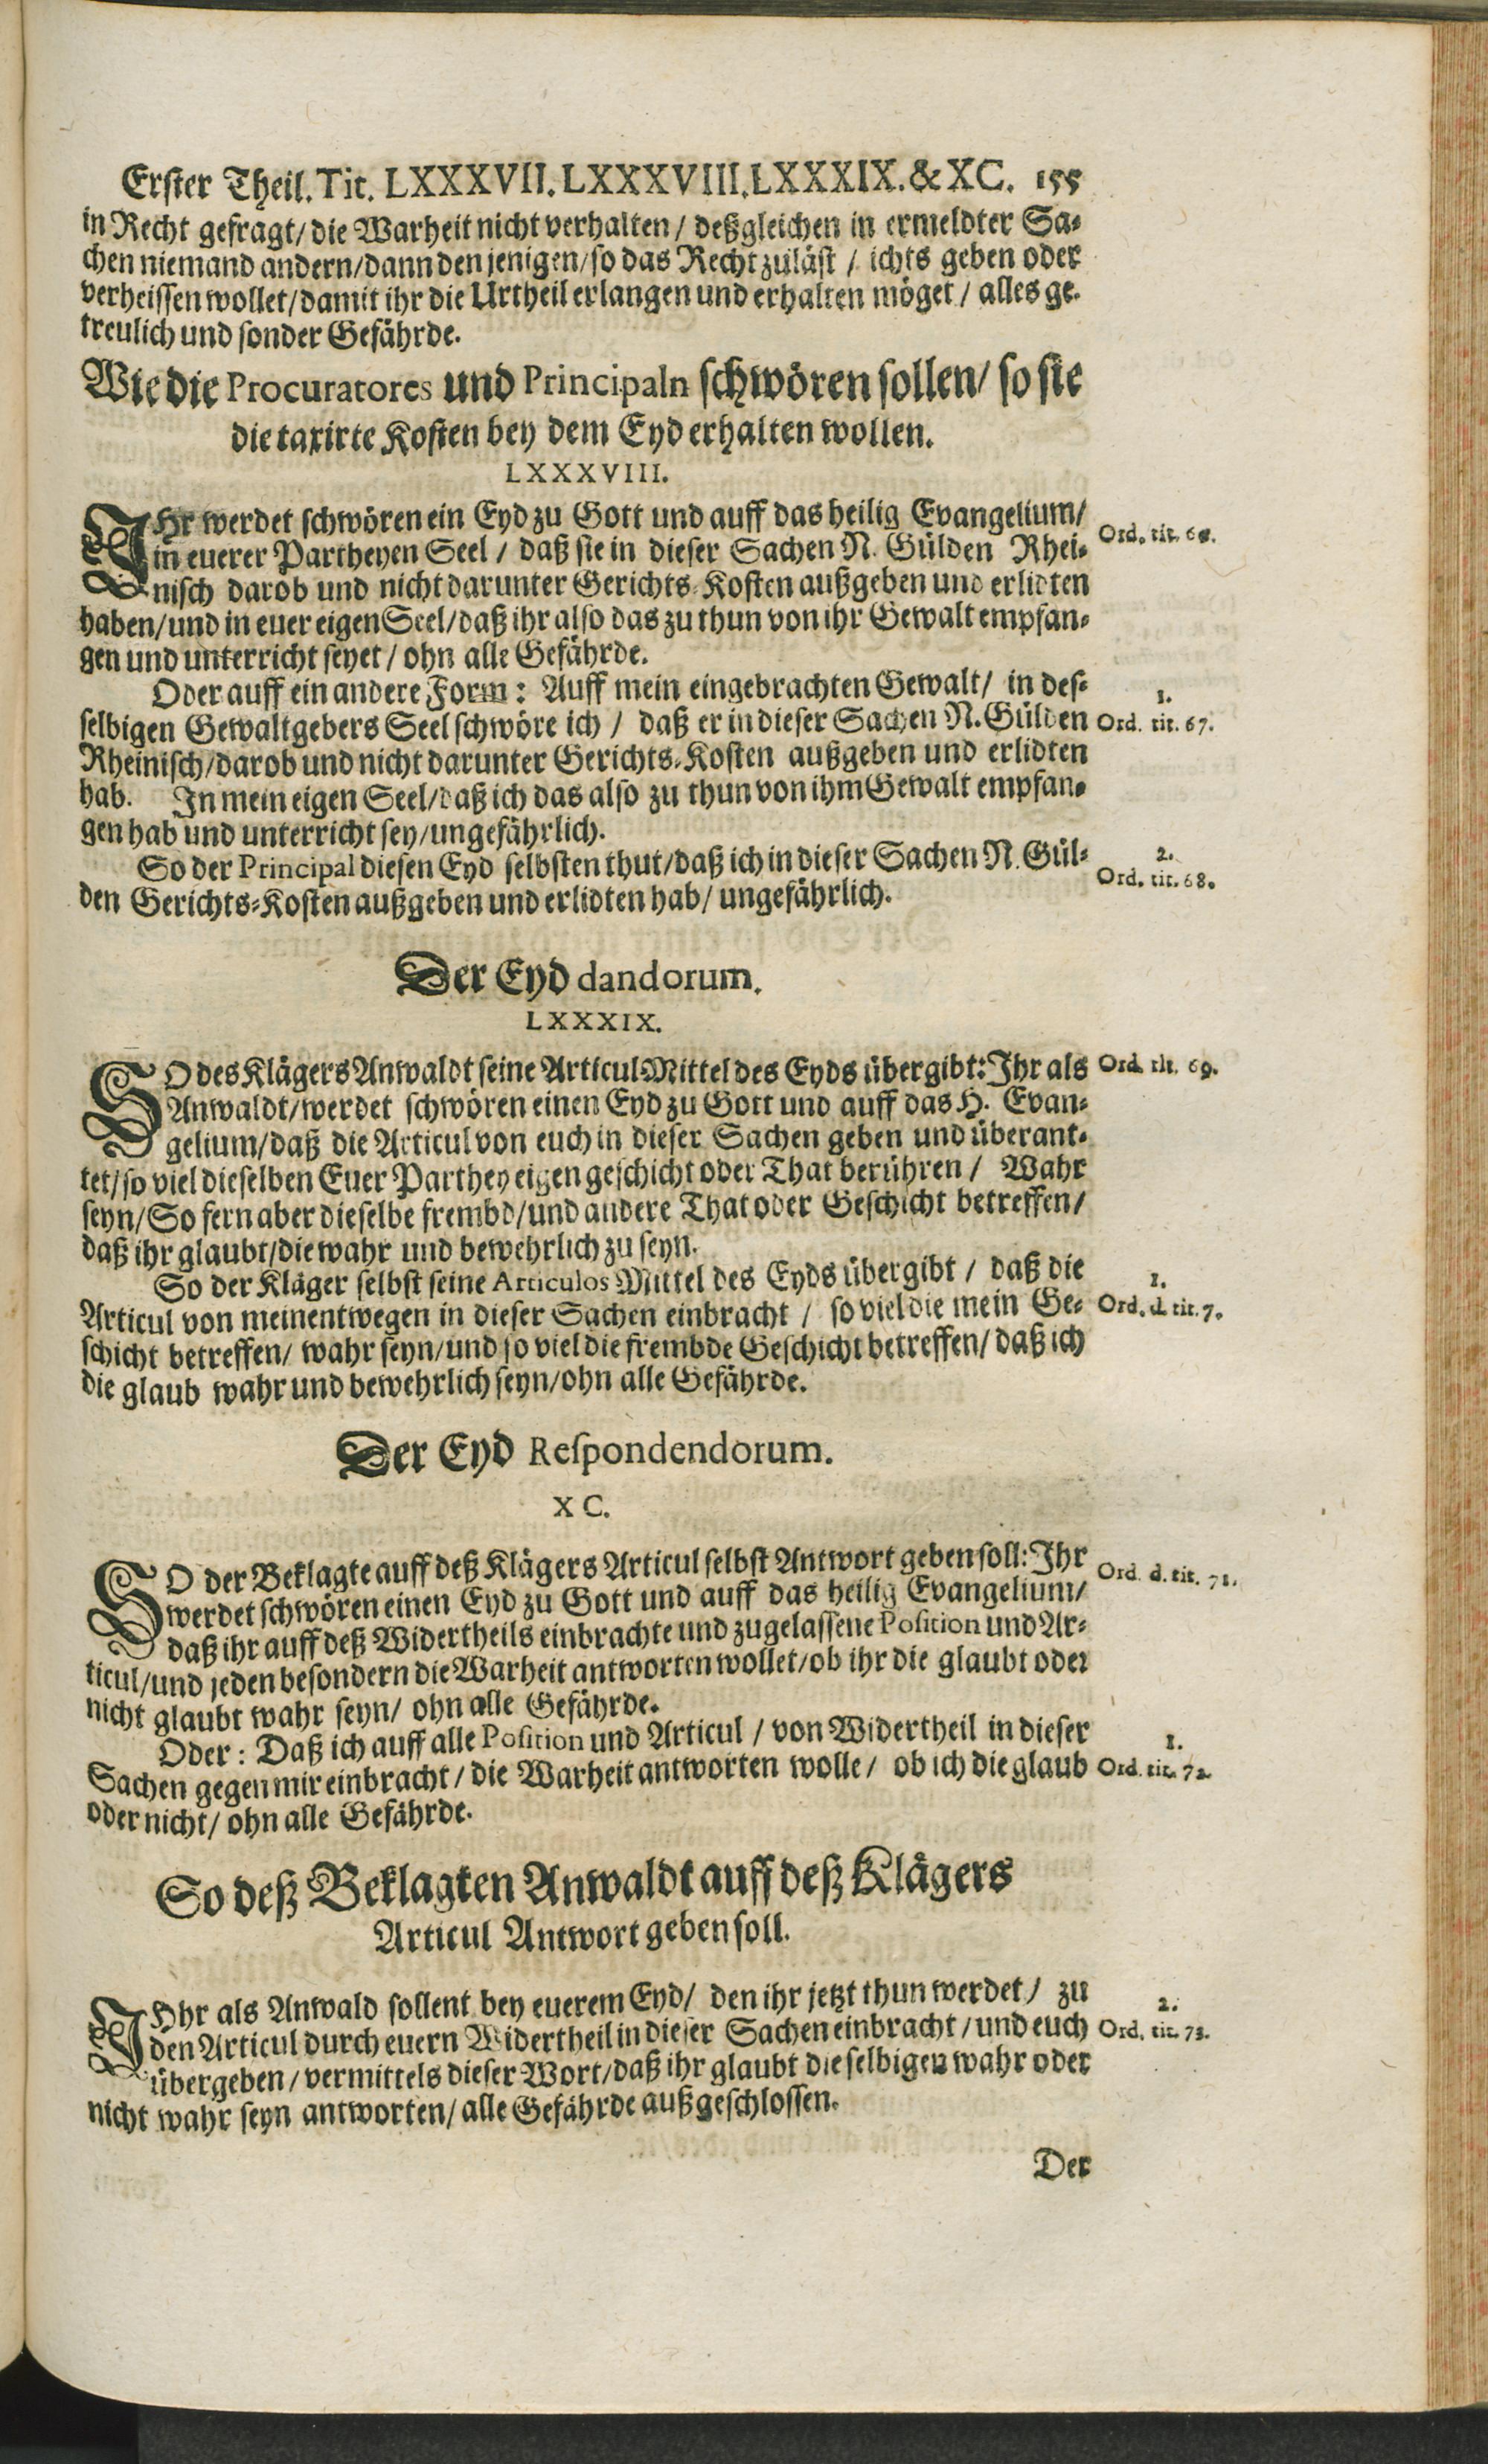 Erster Theil. Tit. LXXXVII. LXXXVIII. LXXXIX. & XC. 155
in Recht gefragt/ die Warheit nicht verhalten / deßgleichen in ermeldter Sa-
chen niemand andern/ dann den jenigen/ so das Recht zuläst / ichts geben oder
verheissen wollet/ damit ihr die Urtheil erlangen und erhalten möget / alles ge-
treulich und sonder Gefährde.
Wie die Procuratores und Principaln schwören sollen/ so sie
die taxirte Kosten bey dem Eyd erhalten wollen.
LXXXVIII.
IHr werdet schwören ein Eyd zu Gott und auff das heilig Evangelium/
Ord. tit.
in euerer Partheyen Seel / daß sie in dieser Sachen N. Gülden Rhei-
nisch darob und nicht darunter Gerichts-Kosten außgeben und erlidten
haben/ und in euer eigen Seel/ daß ihr also das zu thun von ihr Gewalt empfan-
gen und unterricht seyet / ohn alle Gefährde.
Oder auff ein andere Form: Auff mein eingebrachten Gewalt/ in des-
1.
selbigen Gewaltgebers Seel schwöre ich / daß er in dieser Sachen N. Gülden
Ord. tit. 67.
Rheinisch/ darob und nicht darunter Gerichts-Kosten außgeben und erlidten
hab. In mein eigen Seel/ daß ich das also zu thun von ihm Gewalt empfan-
gen hab und unterricht sey/ ungefährlich.
So der Principal diesen Eyd selbsten thut/ daß ich in dieser Sachen N. Gül-
2.
Ord. tit. 68.
den Gerichts-Kosten außgeben und erlidten hab/ ungefährlich.
Der Eyd dandorum.
LXXXIX.
SO des Klägers Anwaldt seine Articul Mittel des Eyds übergibt: Ihr als
Ord. tit. 69.
Anwaldt/ werdet schwören einen Eyd zu Gott und auff das H. Evan-
gelium/ daß die Articul von euch in dieser Sachen geben und überant-
tet/ so viel dieselben Euer Parthey eigen geschicht oder That berühren / Wahr
seyn/ So fern aber dieselbe frembd/ und andere That oder Geschicht betreffen/
daß ihr glaubt/ die wahr und bewehrlich zu seyn.
So der Kläger selbst seine Articulos Mittel des Eyds übergibt / daß die
1.
Articul von meinentwegen in dieser Sachen einbracht / so viel die mein Ge-
Ord. d. tit. 7.
schicht betreffen/ wahr seyn/ und so viel die frembde Geschicht betreffen/ daß ich
die glaub wahr und bewehrlich seyn/ ohn alle Gefährde.
Der Eyd Respondendorum.
XC.
SO der Beklagte auff deß Klägers Articul selbst Antwort geben soll: Ihr
Ord. d. tit. 71.
werdet schwören einen Eyd zu Gott und auff das heilig Evangelium/
daß ihr auff deß Widertheils einbrachte und zugelassene Position und Ar-
ticul/ und jeden besondern die Warheit antworten wollet/ ob ihr die glaubt oder
nicht glaubt wahr seyn/ ohn alle Gefährde.
Oder: Daß ich auff alle Position und Articul / von Widertheil in dieser
1.
Sachen gegen mir einbracht / die Warheit antworten wolle / ob ich die glaub
Ord. tit. 72.
oder nicht/ ohn alle Gefährde.
So deß Beklagten Anwaldt auff deß Klägers
Articul Antwort geben soll.
IHhr als Anwald sollent bey euerem Eyd/ den ihr jetzt thun werdet/ zu
2.
den Articul durch euern Widertheil in dieser Sachen einbracht / und euch
Ord. tit. 73.
übergeben / vermittels dieser Wort/ daß ihr glaubt dieselbigen wahr oder
nicht wahr seyn antworten/ alle Gefährde außgeschlossen.
Der